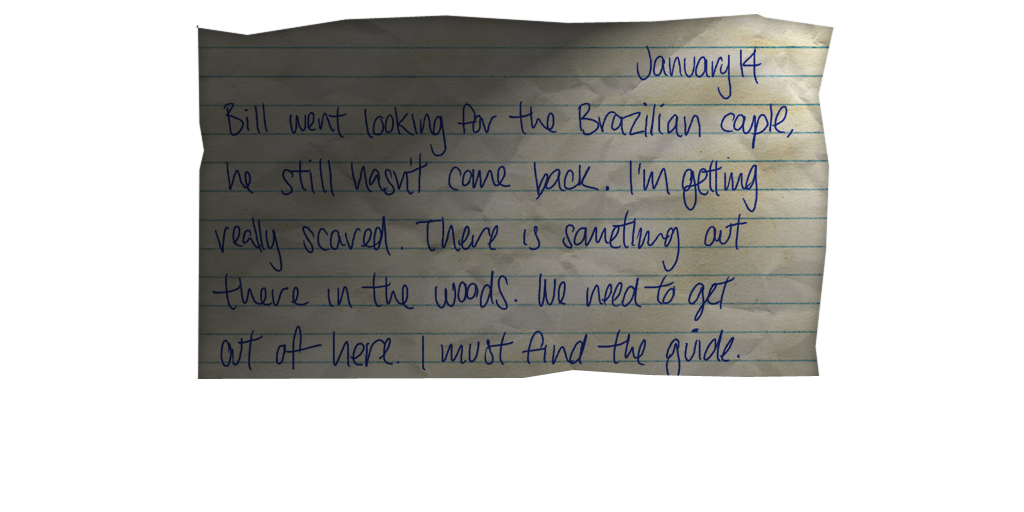 January 14
Bill went looking for the Brazilian couple,
he still hasn't come back. I'm getting
really scared. There is something out
there in the woods. We need to get
out of here. I must find the guide.